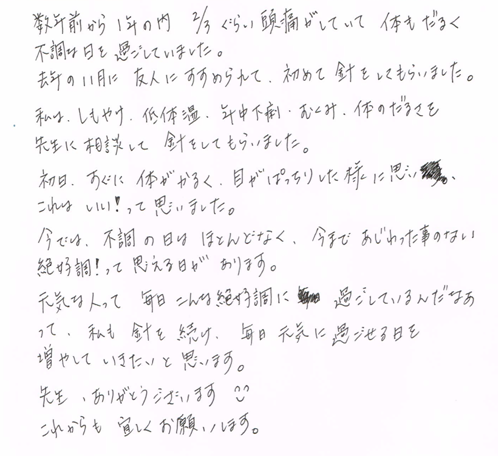 数年前から1年の内 2/3ぐらい頭痛がしていて 体もだるく
不調な日を過ごしていました。
去年の11月に 友人にすすめられて、初めて針をしてもらいました。
私は、しもやけ、低体温、年中下痢、むくみ、体のだるさを
先生に相談して 針をしてもらいました。
初日、すぐに体がかるく、目がぱっちりした様に思い、
これは いい!って思いました。
今では、不調の日は ほとんどなく、今まで あじわった事のない
絶好調!って思える日が あります。
元気な人って 毎日こんな絶好調に 過ごしているんだなあ
って、私も 針を 続け、毎日 元気に過ごせる日を
増やして いきたいと思います。
先生、ありがとうございます
これからも 宜しくお願いします。